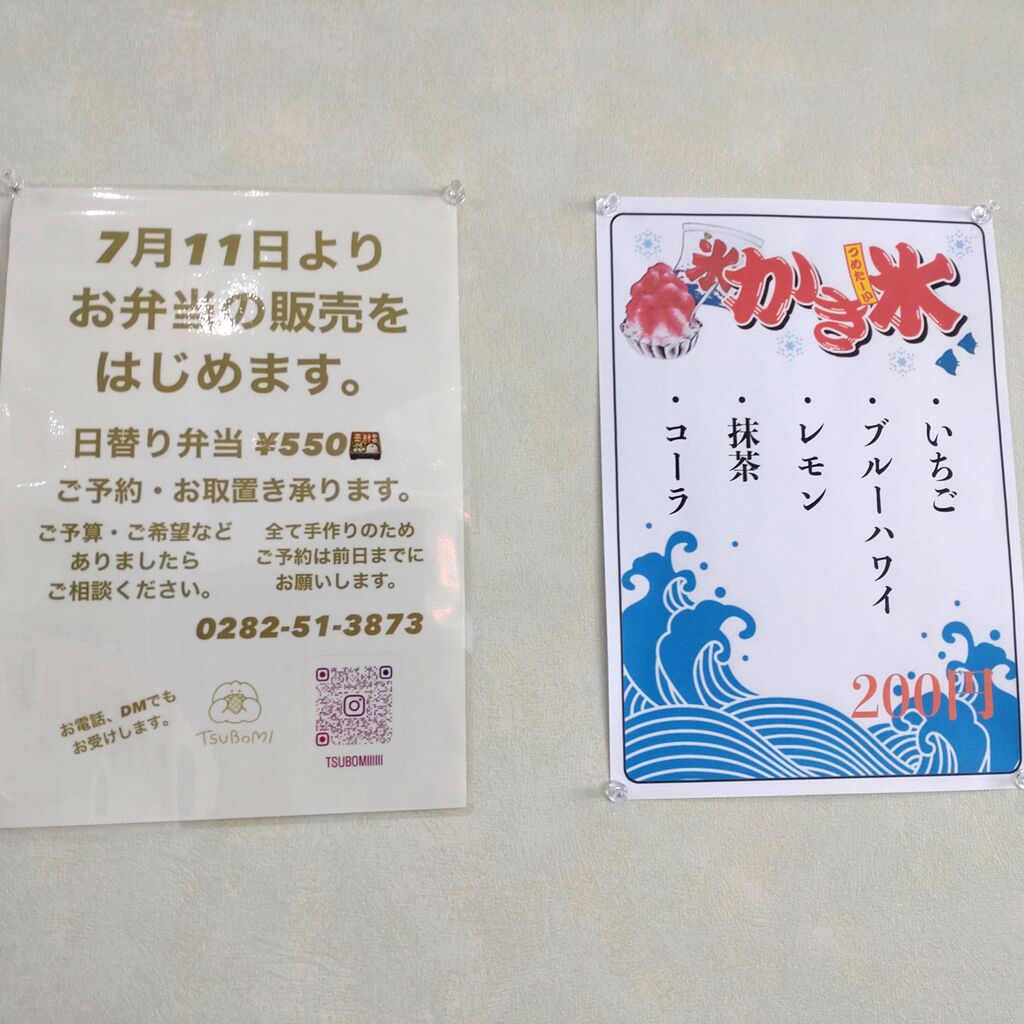 7月11日より
お弁当の販売を
はじめます。
日替り弁当 ¥550
ご予約・お取置き承ります。
ご予算・ご希望など
ありましたら
ご相談ください。
全て手作りのため
ご予約は前日までに
お願いします。
0282-51-3873
お電話、DMでも
お受けします。
TSUBOMI
TSUBOMIIIIII
氷
かき氷
つめた〜い
・いちご
・ブルーハワイ
・レモン
・抹茶
・コーラ
200円